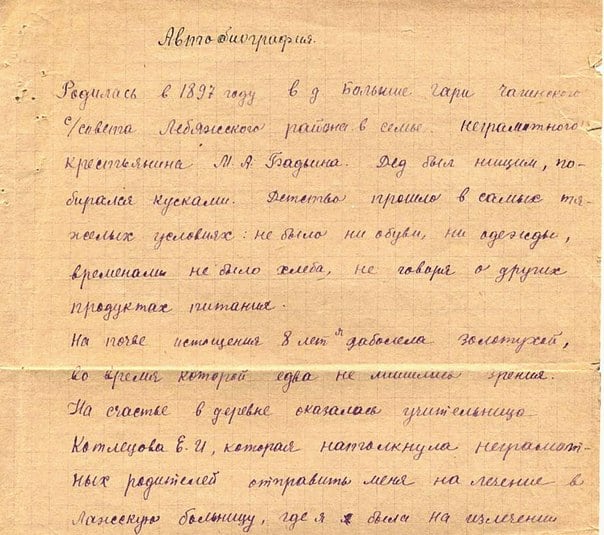 Автобиография.
Родилась в 1897 году в д Большие Гари Чагинского
с/совета Лебяжского района в семье неграмотного
крестьянина М.А. Бадьина. Дед был нищим, по-
бирался кусками. Детство прошло в самых тя-
желых условиях: не было ни обуви, ни одежды,
временами не было хлеба, не говоря о других
продуктах питания.
На почве истощения 8 лет я заболела золотухой,
во время которой едва не лишилась зрения.
На счастье в деревне оказалась учительница
Котлецова Е.И, которая натолкнула неграмот-
ных родителей отправить меня на лечение в
Лажскую больницу, где я была на излечении